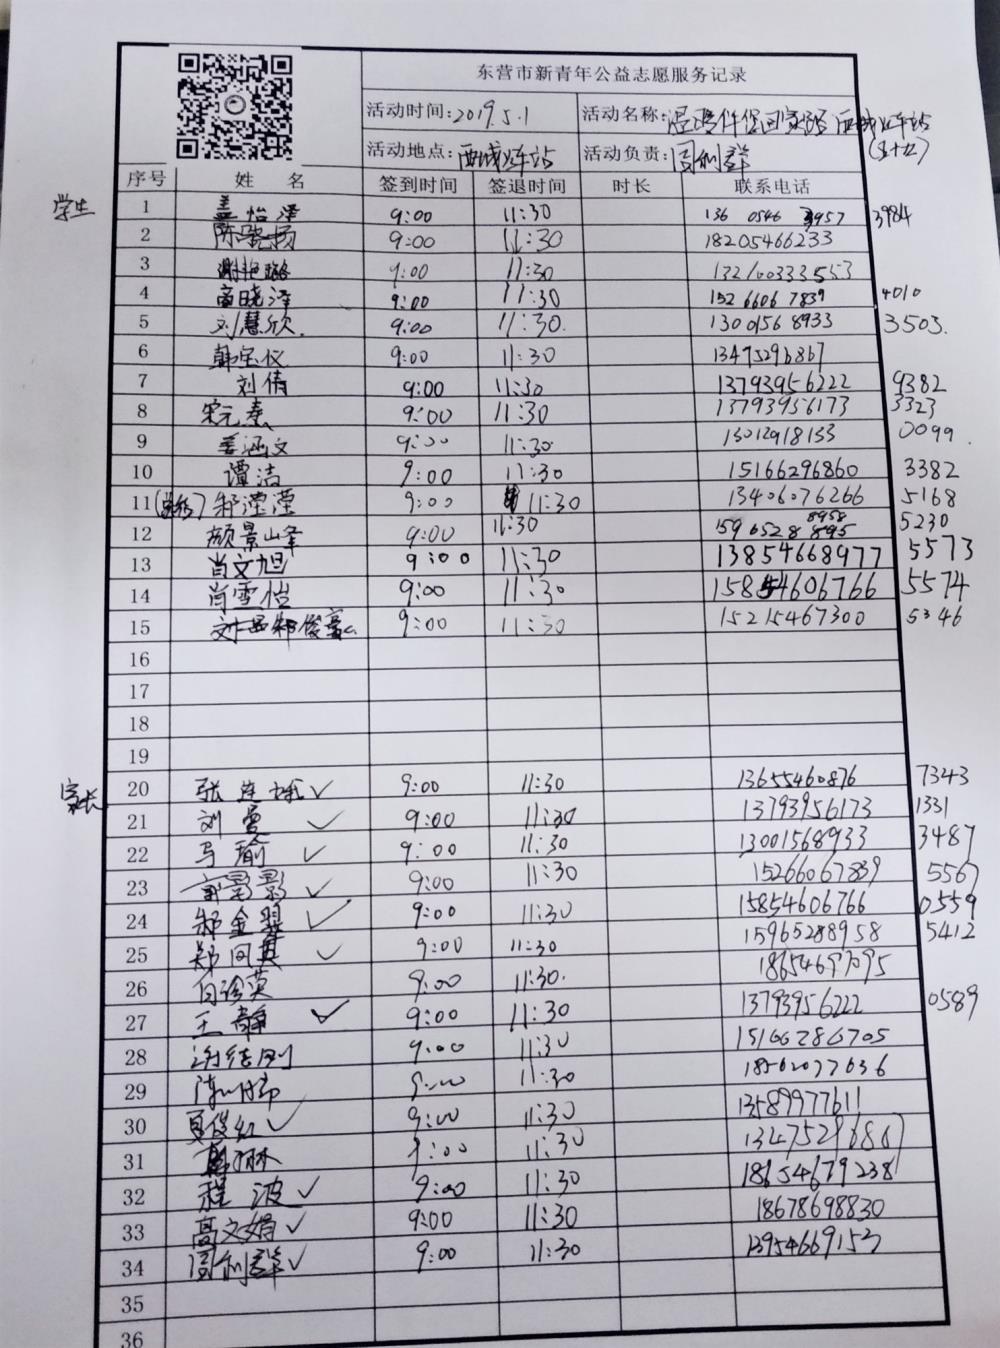 东营市新青年公益志愿服务记录
活动时间:2019.5.1 活动名称:温暖伴您回家路 西城火车站
活动地点:西城火车站 活动负责:周利群 (五十五)
序号 姓 名 签到时间 签退时间 时长 联系电话
学生
1 盖怡泽 9:00 11:30 136 0546 3957 3984
2 陈晓扬 9:00 11:30 18205466233
3 9:00 11:30 13210033353
4 高晓泽 9:00 11:30 152 6606 7839 4010
5 刘慧欣. 9:00 11:30. 13001568933 3503.
6 韩宝仪 9:00 11:30 13475296867
7 刘倩 9:00 11:30 13793956222 9382
8 宋元泰 9:00 11:30 13793956173 3323
9 姜涵文 9:00 11:30 13012918133 0099.
10 谭洁 9:00 11:30 15166296860 3382
11 郝滢滢 9:00 11:30 13406076266 5168
12 颜景山峰 9:00 11:30 159 6528 8958 5230
13 肖文旭 9:00 11:30 13854668977 5573
14 肖雪恺 9:00 11:30 15854606766 5574
15 郑俊豪 9:00 11:30 15215467300 5346
16
17
18
19
家长
20 张连娥✓ 9:00 11:30 13655460876 7343
21 刘曼 ✓ 9:00 11:30 13793956173 1331
22 马瑜 ✓ 9:00 11:30 13001568933 3487
23 影影 ✓ 9:00 11:30 15266067839 5567
24 郝金翠 ✓ 9:00 11:30 15854606766 0559
25 郑同英 ✓ 9:00 11:30 15965288958 5412
26 9:00 11:30. 18654697095
27 王静 ✓ 9:00 11:30 13793956222 0589
28 9:00 11:30 15166286705
29 9:00 11:30 18562077636
30 夏俊红✓ 9:00 11:30 13589977611
31 9:00 11:30 13475296867
32 程波✓ 9:00 11:30 18654679238
33 高文娟✓ 9:00 11:30 18678698830
34 周利群✓ 9:00 11:30 13954669153
35
36